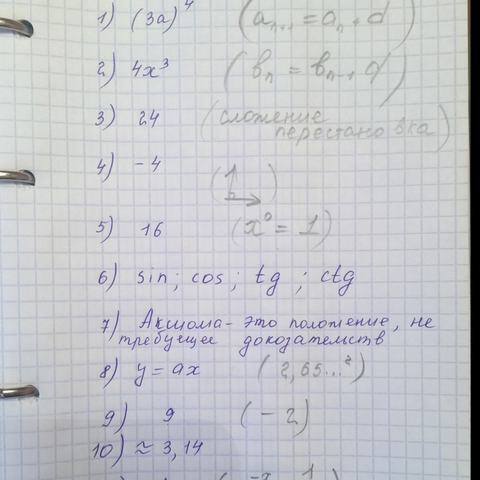 1) (3a)⁴ (aₙ₊₁ = aₙ + d)
2) 4x³ (bₙ = bₙ₋₁ q)
3) 24 (сложение
перестановка)
4) -4
5) 16 (x⁰ = 1)
6) sin; cos; tg; ctg
7) Аксиома - это положение, не
требующее доказательств
8) y = ax (2,65...²)
9) 9 (-2)
10) ≈ 3,14